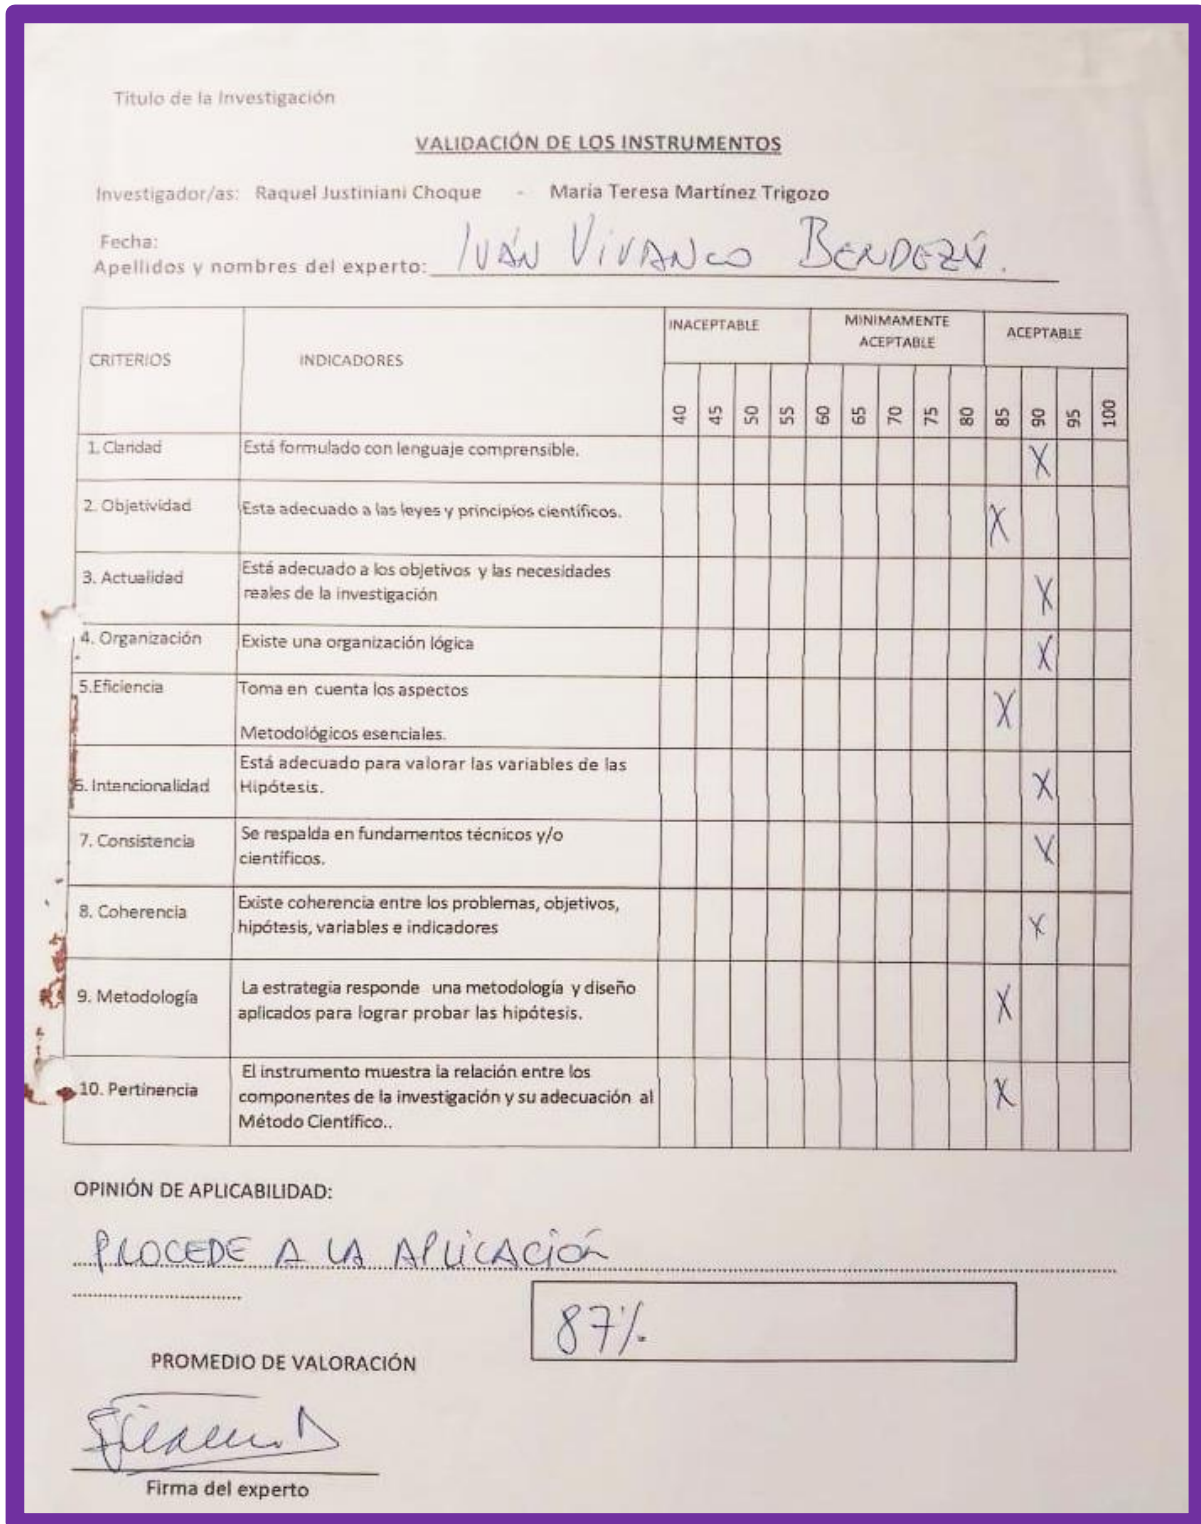 Titulo de la Investigación
VALIDACIÓN DE LOS INSTRUMENTOS
Investigador/as: Raquel Justiniani Choque - María Teresa Martínez Trigozo
Fecha:
Apellidos y nombres del experto: IVÁN VIVANCO BENDEZÚ.
CRITERIOS INDICADORES INACEPTABLE MINIMAMENTE ACEPTABLE ACEPTABLE
40 45 50 55 60 65 70 75 80 85 90 95 100
1. Claridad Está formulado con lenguaje comprensible. X
2. Objetividad Esta adecuado a las leyes y principios científicos. X
3. Actualidad Está adecuado a los objetivos y las necesidades
reales de la investigación X
4. Organización Existe una organización lógica X
5.Eficiencia Toma en cuenta los aspectos
Metodológicos esenciales. X
6. Intencionalidad Está adecuado para valorar las variables de las
Hipótesis. X
7. Consistencia Se respalda en fundamentos técnicos y/o
científicos. X
8. Coherencia Existe coherencia entre los problemas, objetivos,
hipótesis, variables e indicadores X
9. Metodología La estrategia responde una metodología y diseño
aplicados para lograr probar las hipótesis. X
10. Pertinencia El instrumento muestra la relación entre los
componentes de la investigación y su adecuación al
Método Científico.. X
OPINIÓN DE APLICABILIDAD:
PROCEDE A LA APLICACIÓN
87%
PROMEDIO DE VALORACIÓN
Firma del experto